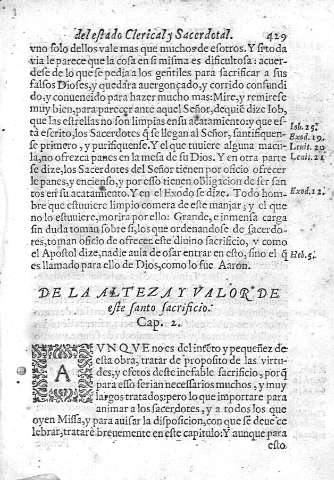 del estado Clerical, y Sacerdotal. 429
vno solo dellos vale mas que muchos de esotros. Y si toda
via le parece que la cosa en si misma es dificultosa: acuer-
dese de lo que se pedia a los gentiles para sacrificar a sus
falsos Dioses, y quedara auergonçado, y corrido confundi
do, y conuencido para hazer mucho mas: Mire, y remirese
muy bien, para parecer ante aquel Señor, de quiē dize Iob,
que las estrellas no son limpias en su acatamiento: y que es-
tà escrito, los Sacerdotes q̃ se llegan al Señor, santifiquen-
se primero, y purifiquense. Y el que tuuiere alguna macu-
la, no ofrezca panes en la mesa de su Dios. Y en otra parte
se dize, los Sacerdotes del Señor tienen por oficio ofrecer
le panes, y encienso, y por esso tienen obligacion de ser san
tos en su acatamiento. Y en el Exodo se dize. Todo hom-
bre que estuuiere limpio comera de este manjar; y el que
no lo estuuiere, morira por ello: Grande, e inmensa carga
sin duda toman sobre si, los que ordenandose de sacerdo-
tes, toman oficio de ofrecer este diuino sacrificio, y como
el Apostol dize, nadie aula de osar entrar en esto, sino el q̃
es llamado para ello de Dios, como lo fue Aaron.
Iob. 25.
Exod. 19.
Leuit. 20.
Leuit. 21
Exod. 12.
Heb. 5.
DE LA ALTEZA Y VALOR DE
este santo sacrificio.
Cap. 2.
AVNQVE no es del intēto y pequeñez de
esta obra, tratar de proposito de las virtu-
des, y efetos deste inefable sacrificio, por q̃
para esso serian necessarios muchos, y muy
largos tratados: pero lo que importare para
animar a los sacerdotes, y a todos los que
oyen Missa, y para auisar la disposicion, con que se deue ce
lebrar, tratare breuemente en este capitulo: Y aunque para
esto